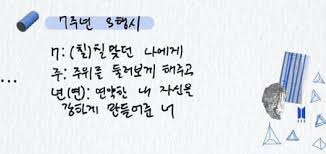 7주년 3행시
7: (칠)칠맞던 나에게
주: 주위를 둘러보게 해주고
년(연): 연약한 내 자신을
강하게 만들어준 너
...